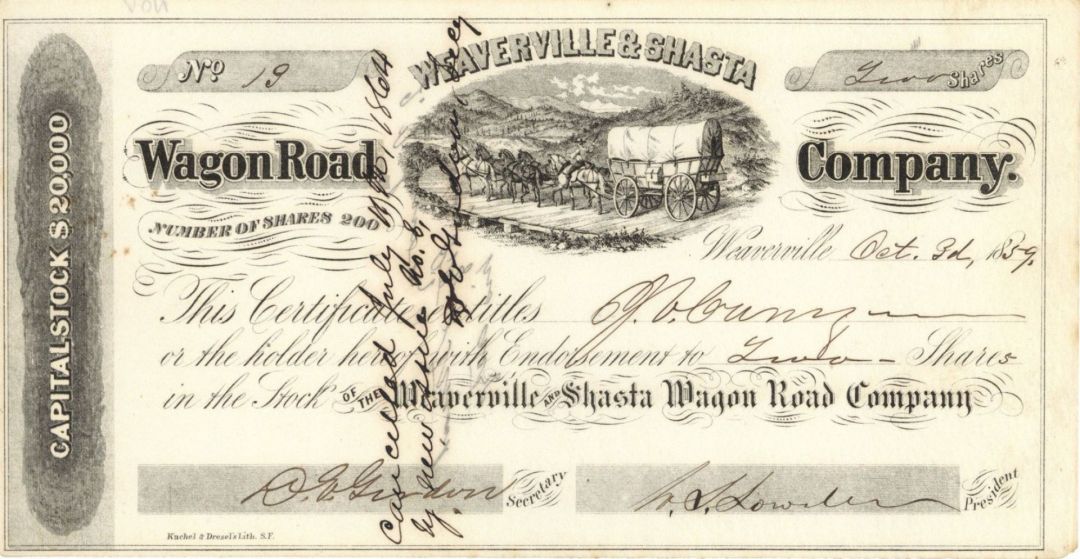 No 19
WEAVERVILLE & SHASTA
Two Shares
Wagon Road
Company.
NUMBER OF SHARES 200
CAPITAL STOCK $ 20,000
Weaverville Oct. 3d, 1859.
This Certificate entitles
or the holder hereof with Endorsement to Two Shares
in the Stock OF THE Weaverville AND Shasta Wagon Road Company
Secretary
President
Kuchel & Dresel's Lith. S.F.
Cancelled July 1864
by new issue No. 6,